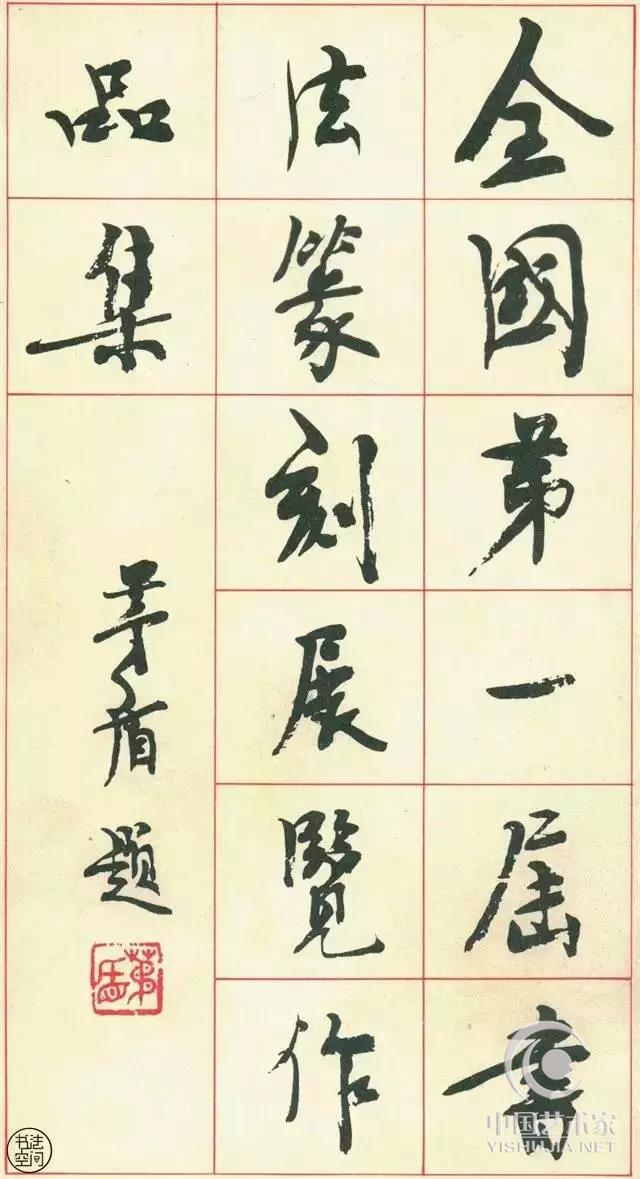 全國第一屆書
法篆刻展覽作
品集
茅盾题
茅盾
书法空间
中国艺术家
YISHUJIA.NET